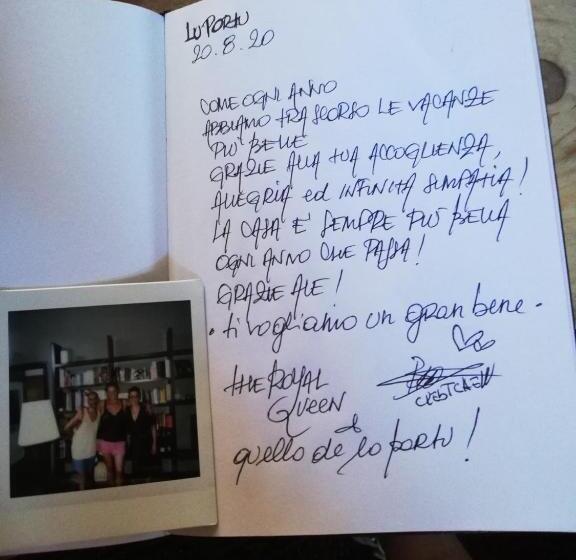 LU PORTU
20.8.20
COME OGNI ANNO
ABBIAMO TRASCORSO LE VACANZE
PIÙ BELLE
GRAZIE ALLA TUA ACCOGLIENZA,
ALLEGRIA ed INFINITA SIMPATIA!
LA CASA E' SEMPRE PIÙ BELLA
OGNI ANNO CHE PASSA!
GRAZIE ALE!
• ti vogliamo un gran bene •
THE ROYAL
QUEEN
&
quello de lo portu!